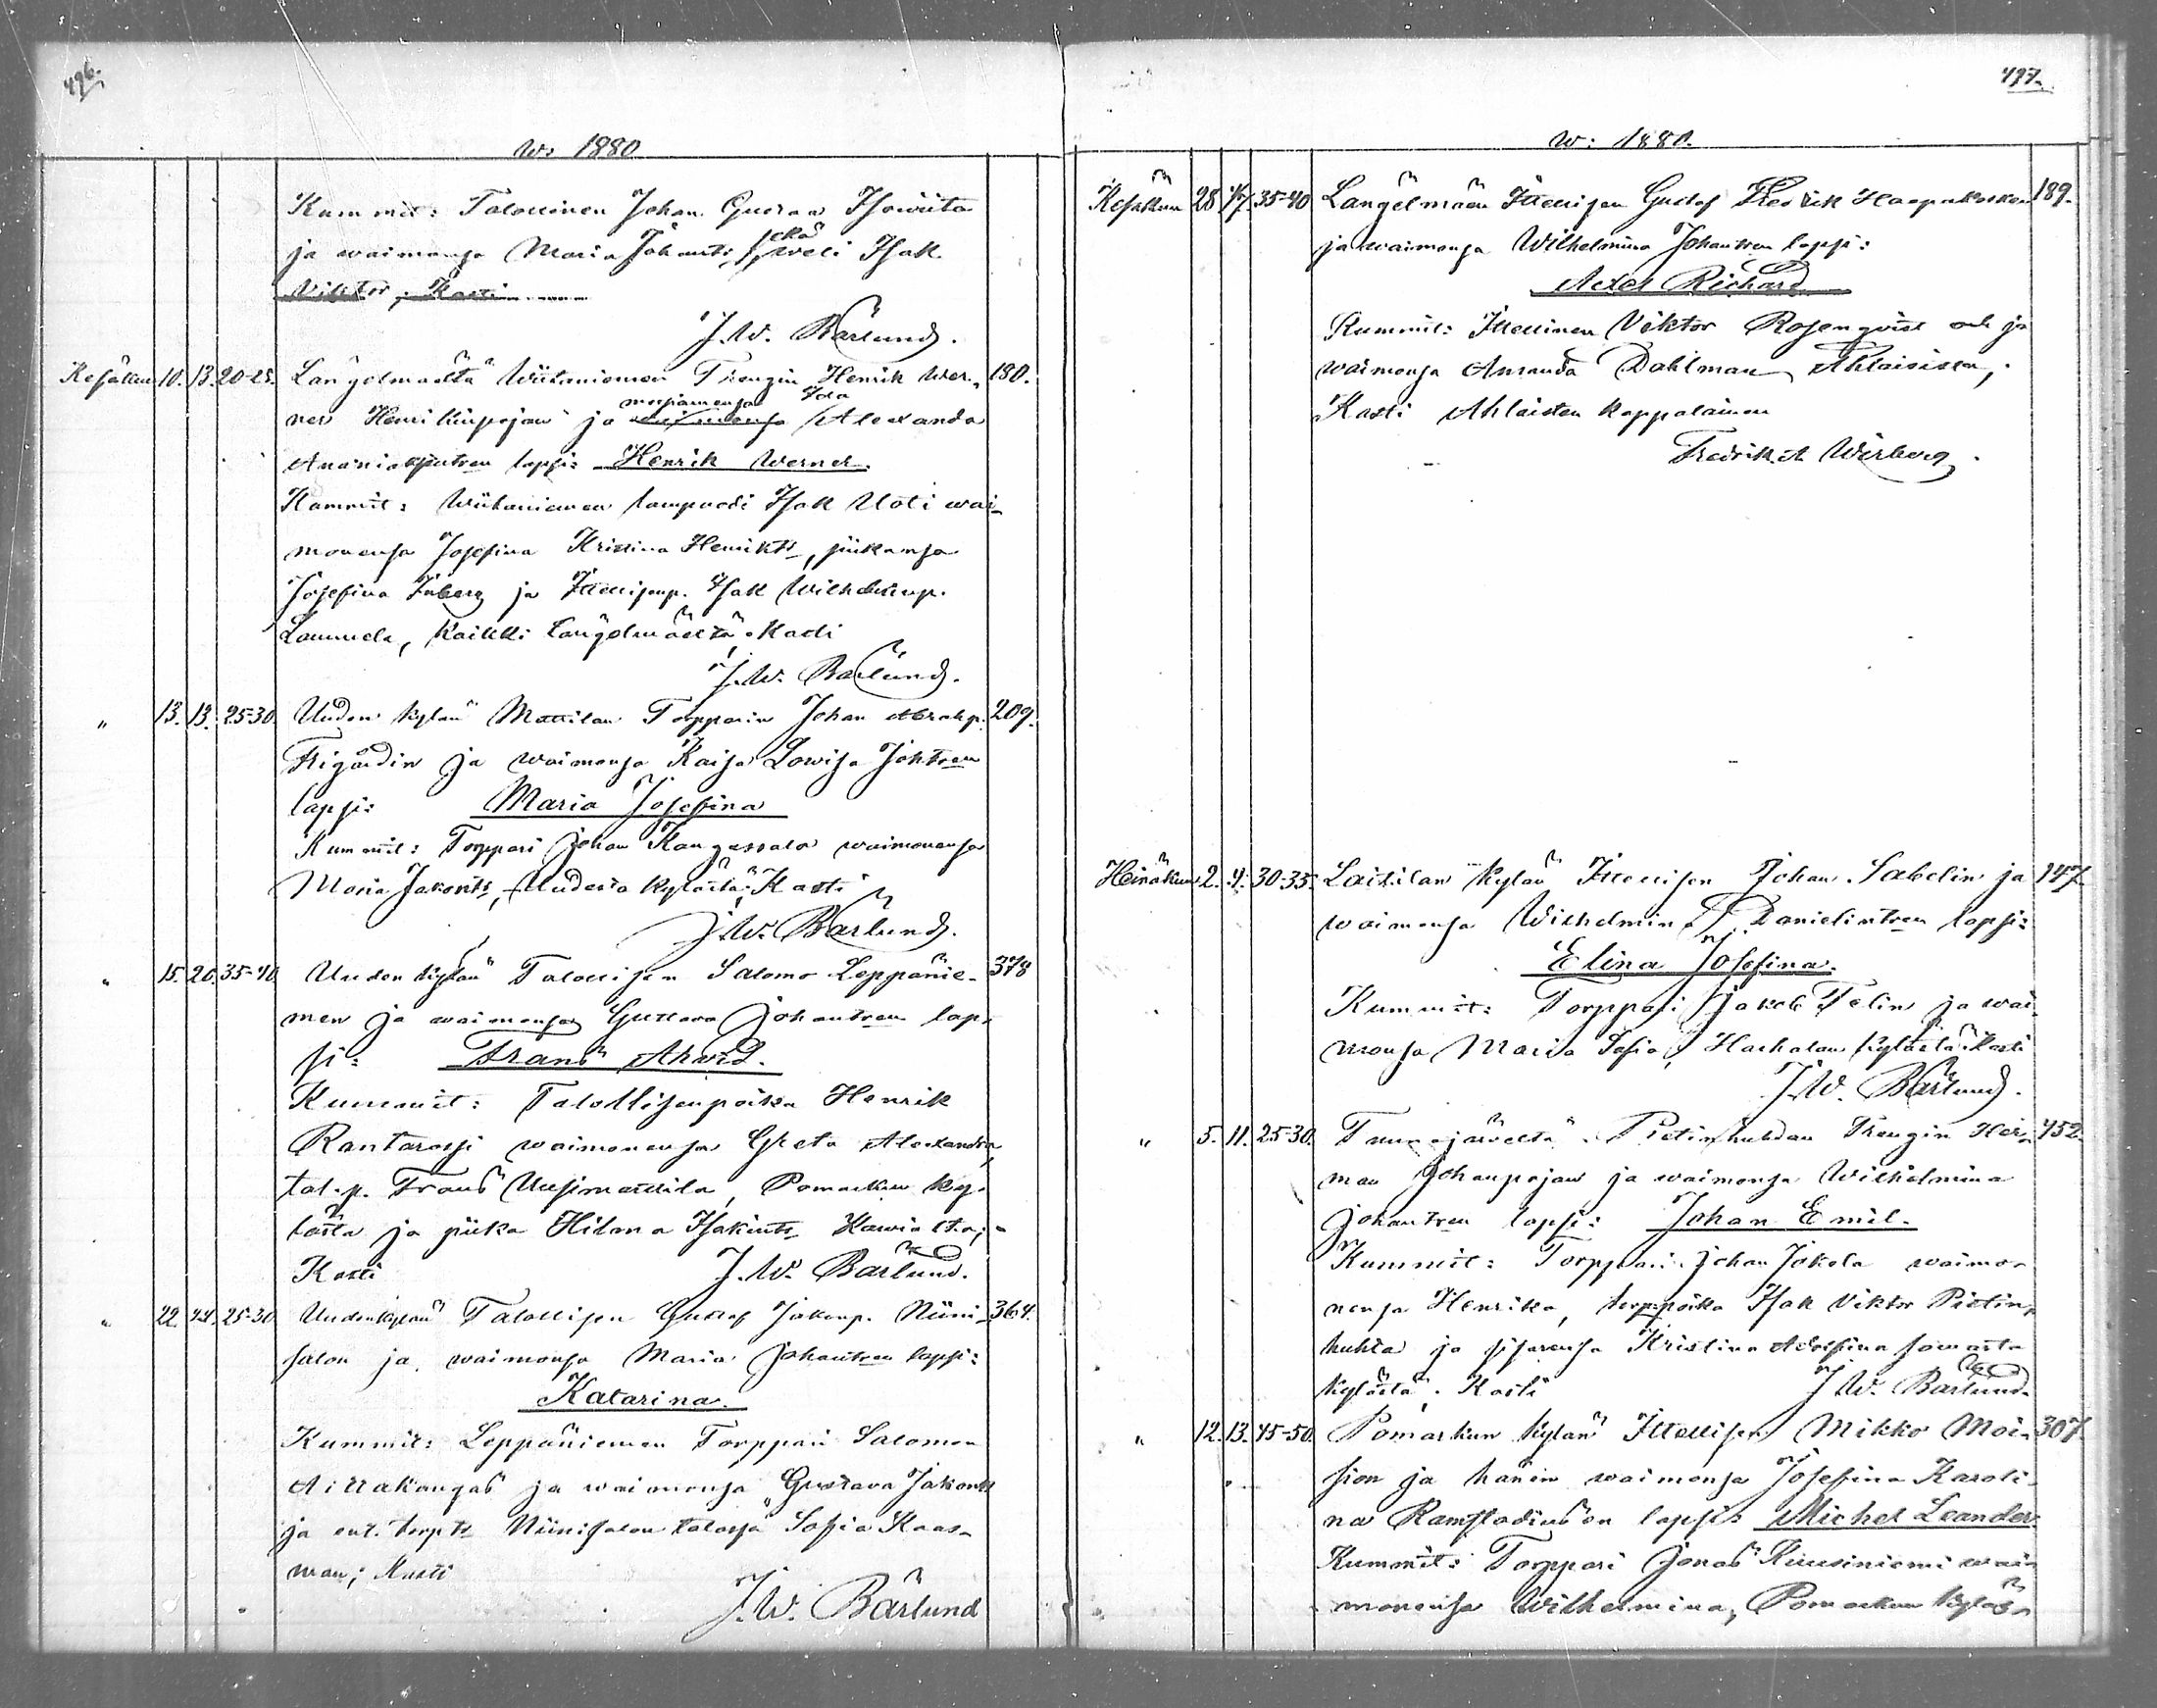 496.
w: 1880
Kummit: Talollinen Johan Gustaa Isowiita
ja waimonsa Maria Johants, sekä weli Isak
Viktor; Kasti
J. W. Bärlund.
Kesäkuu 10. 13. 20-25. Längelmäeltä Wiitaniemen Trengin Henrik Wer- 180.
ner Henrikinpojan ja morsiamensa Ida Alexanda
Ananiaksentren lapsi: Henrik Werner.
Kummit: Wiitaniemen lampuodi Isak Uoti wai-
monensa Josefina Kristina Henrikts, piikansa
Josefina Inberg ja Itellisenp. Isak Wilhelminp.
Lammela, kaikki Längelmäeltä. Kasti
J. W. Bärlund.
" 13. 13. 25-30. Uuden kylän Mattilan Torpparin Johan Abrahp. 209.
Frigårdin ja waimonsa Kaisa Lowisa Johtren
lapsi: Maria Josefina
Kummit: Torppari Johan Kangassalo waimonensa
Maria Jakopits, Uudesta kylästä; Kasti
J. W. Bärlund.
" 15. 20. 35-40 Uuden kylän Talollisen Salomo Leppänie- 378
men ja waimonsa Gustava Johantren lap-
si: Frans Arvid.
Kummit: Talollisenpoika Henrik
Rantarossi waimonensa Greta Alexandra,
tal.p. Frans Uusimattila, Pomarkun ky-
lästä ja piika Hilma Isakints Kawialta;
Kasti J. W. Bärlund.
" 22. 24. 25-30 Uudenkylän Talollisen Gustaf Jakonp. Niini- 364.
salon ja waimonsa Maria Johantren lapsi:
Katarina.
Kummit: Leppäniemen Torppari Salomon
Aittakangas ja waimonsa Gustava Jakonts
ja ent. torpts Niinisalon talossa Sofia Kaas-
man; Kasti
J. W. Bärlund
497.
w: 1880.
Kesäkuu 28 17. 35-40 Längelmäen Itellisen Gustaf Fredrik Haapakosken 189.
ja waimonsa Wilhelmina Johantren lapsi:
Axel Richard
Kummit: Itellinen Viktor Rosenqvist ja
waimonsa Amanda Dahlman Ahlaisissa,
Kasti Ahlaisten kappalainen
Fredrik A Wirberg.
Heinäkuu 2. 4. 30-35. Laitilan kylän Itellisen Johan Sabelin ja 147.
waimonsa Wilhelmina Danielintren lapsi:
Elina Josefina.
Kummit: Torppari Jakob Felin ja wai-
monsa Maria Sofia, Harhalan kylästä; Kasti
J. W. Bärlund.
" 5. 11. 25-30. Tuunajärveltä Pietinhuhdan Trengin Her- 452.
man Johanpojan ja waimonsa Wilhelmina
Johantren lapsi: Johan Emil.
Kummit: Torppari Johan Jokela waimo-
nensa Henrika, torp.poika Isak Viktor Pietin-
huhta ja sisarensa Kristina Adolfina samasta
kylästä. Kasti J. W. Bärlund.
" 12. 13. 45-50. Pomarkun kylän Itellisen Mikko Moi- 307.
sion ja hänen waimonsa Josefina Karoli-
na Ramstadius'en lapsi: Michel Leander.
Kummit: Torppari Jonas Kuusiniemi wai-
monensa Wilhelmina, Pomarkun kyläs-